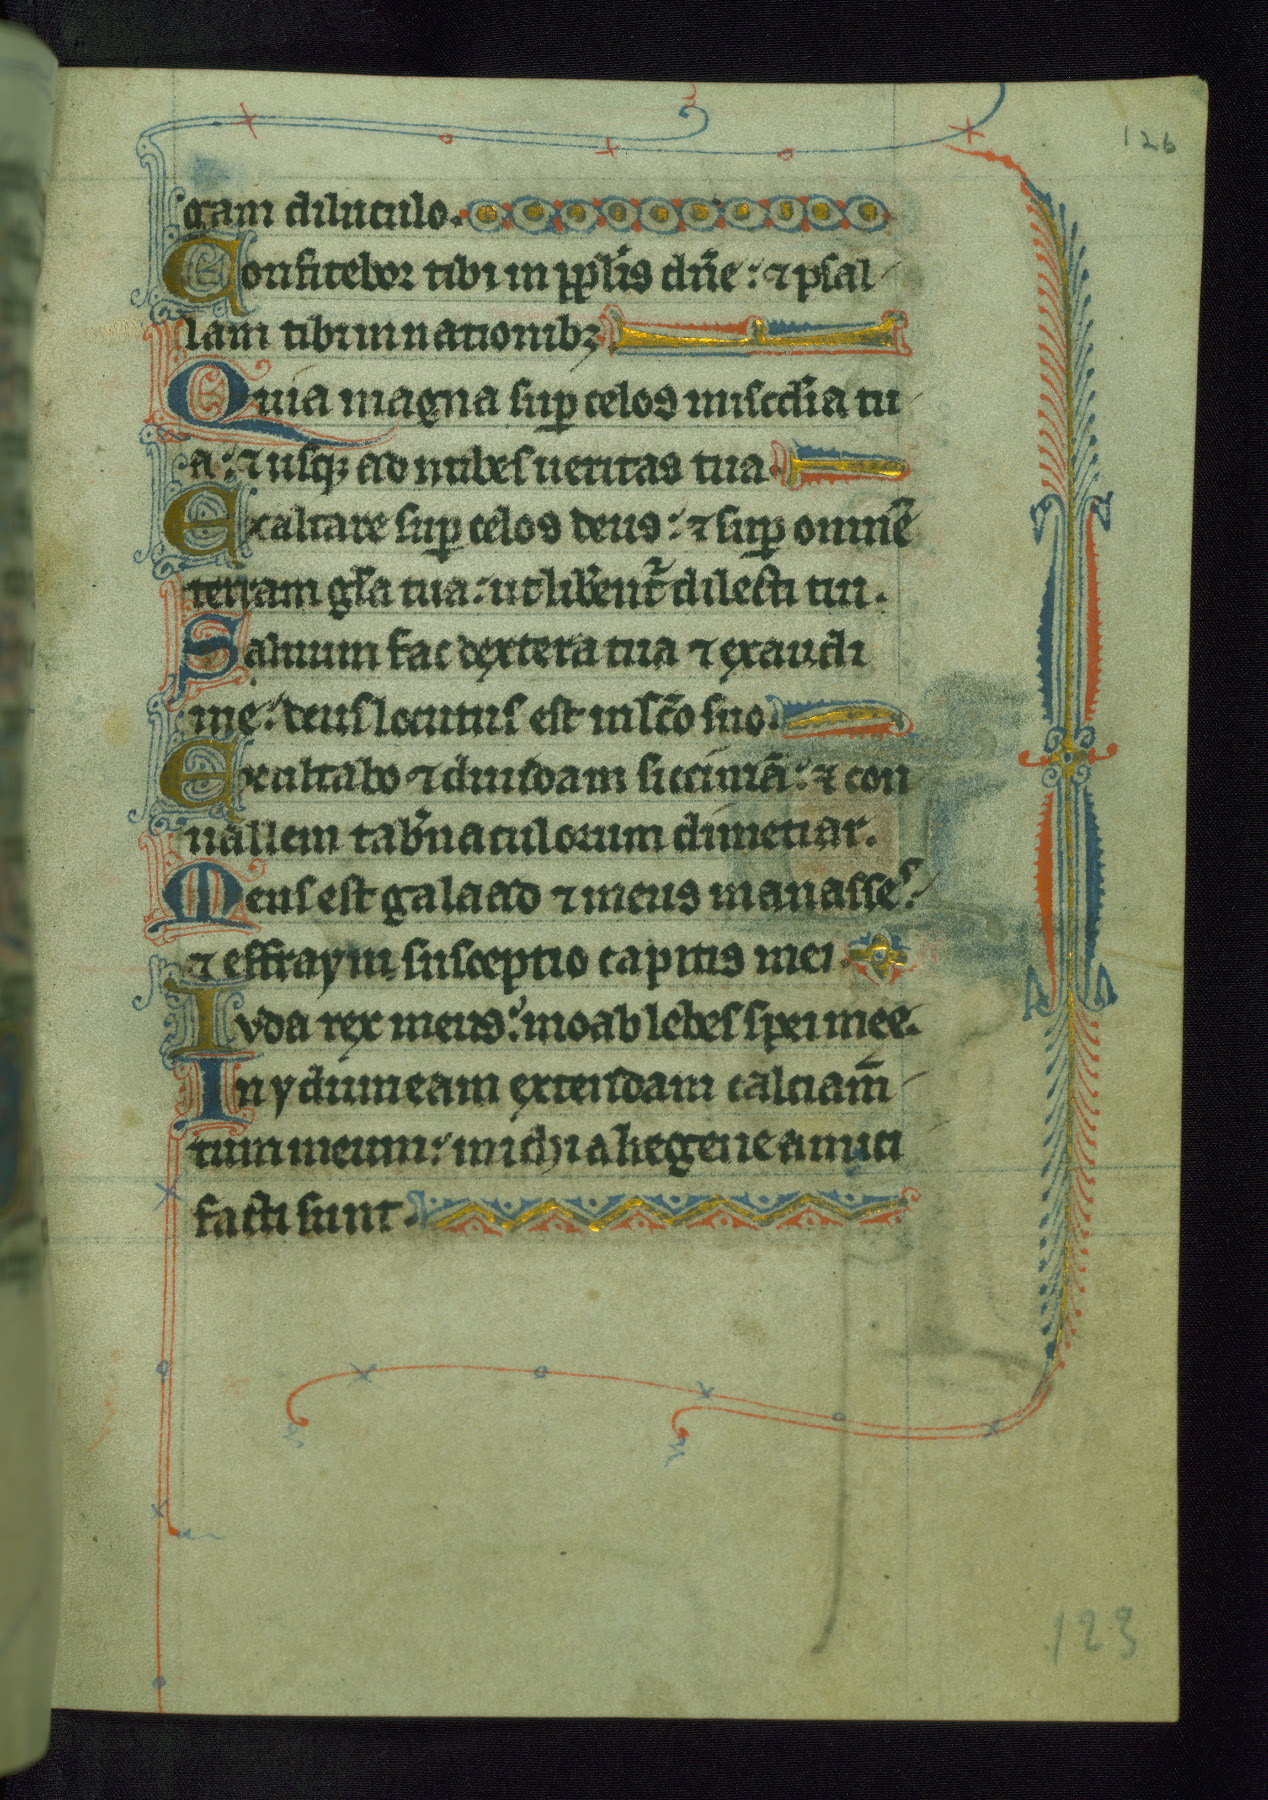 126
gam diluculo.
Confitebor tibi in pp̱lis dn̄e: ⁊ psal
lam tibi in nationibꝫ
Quia magna sup celos misc̄dia tu
a: ⁊ usqꝫ ad nubes ueritas tua
Exaltare sup celos deus: ⁊ sup omnē
terram gl̄a tua: ut lib̄ent̄ dilecti tui.
Saluum fac dextera tua ⁊ exaudi
me: deus locutus est in sc̄o suo.
Exultabo ⁊ diuidam siccimā: ⁊ con
uallem tab̄naculorum dimetiar.
Meus est galaad ⁊ meus manasses:
⁊ effraym susceptio capitis mei.
Iuda rex meus: moab lebes spei mee.
In ydumeam extendam calciam̄
tum meum: michi aliegene amici
facti sunt.
123